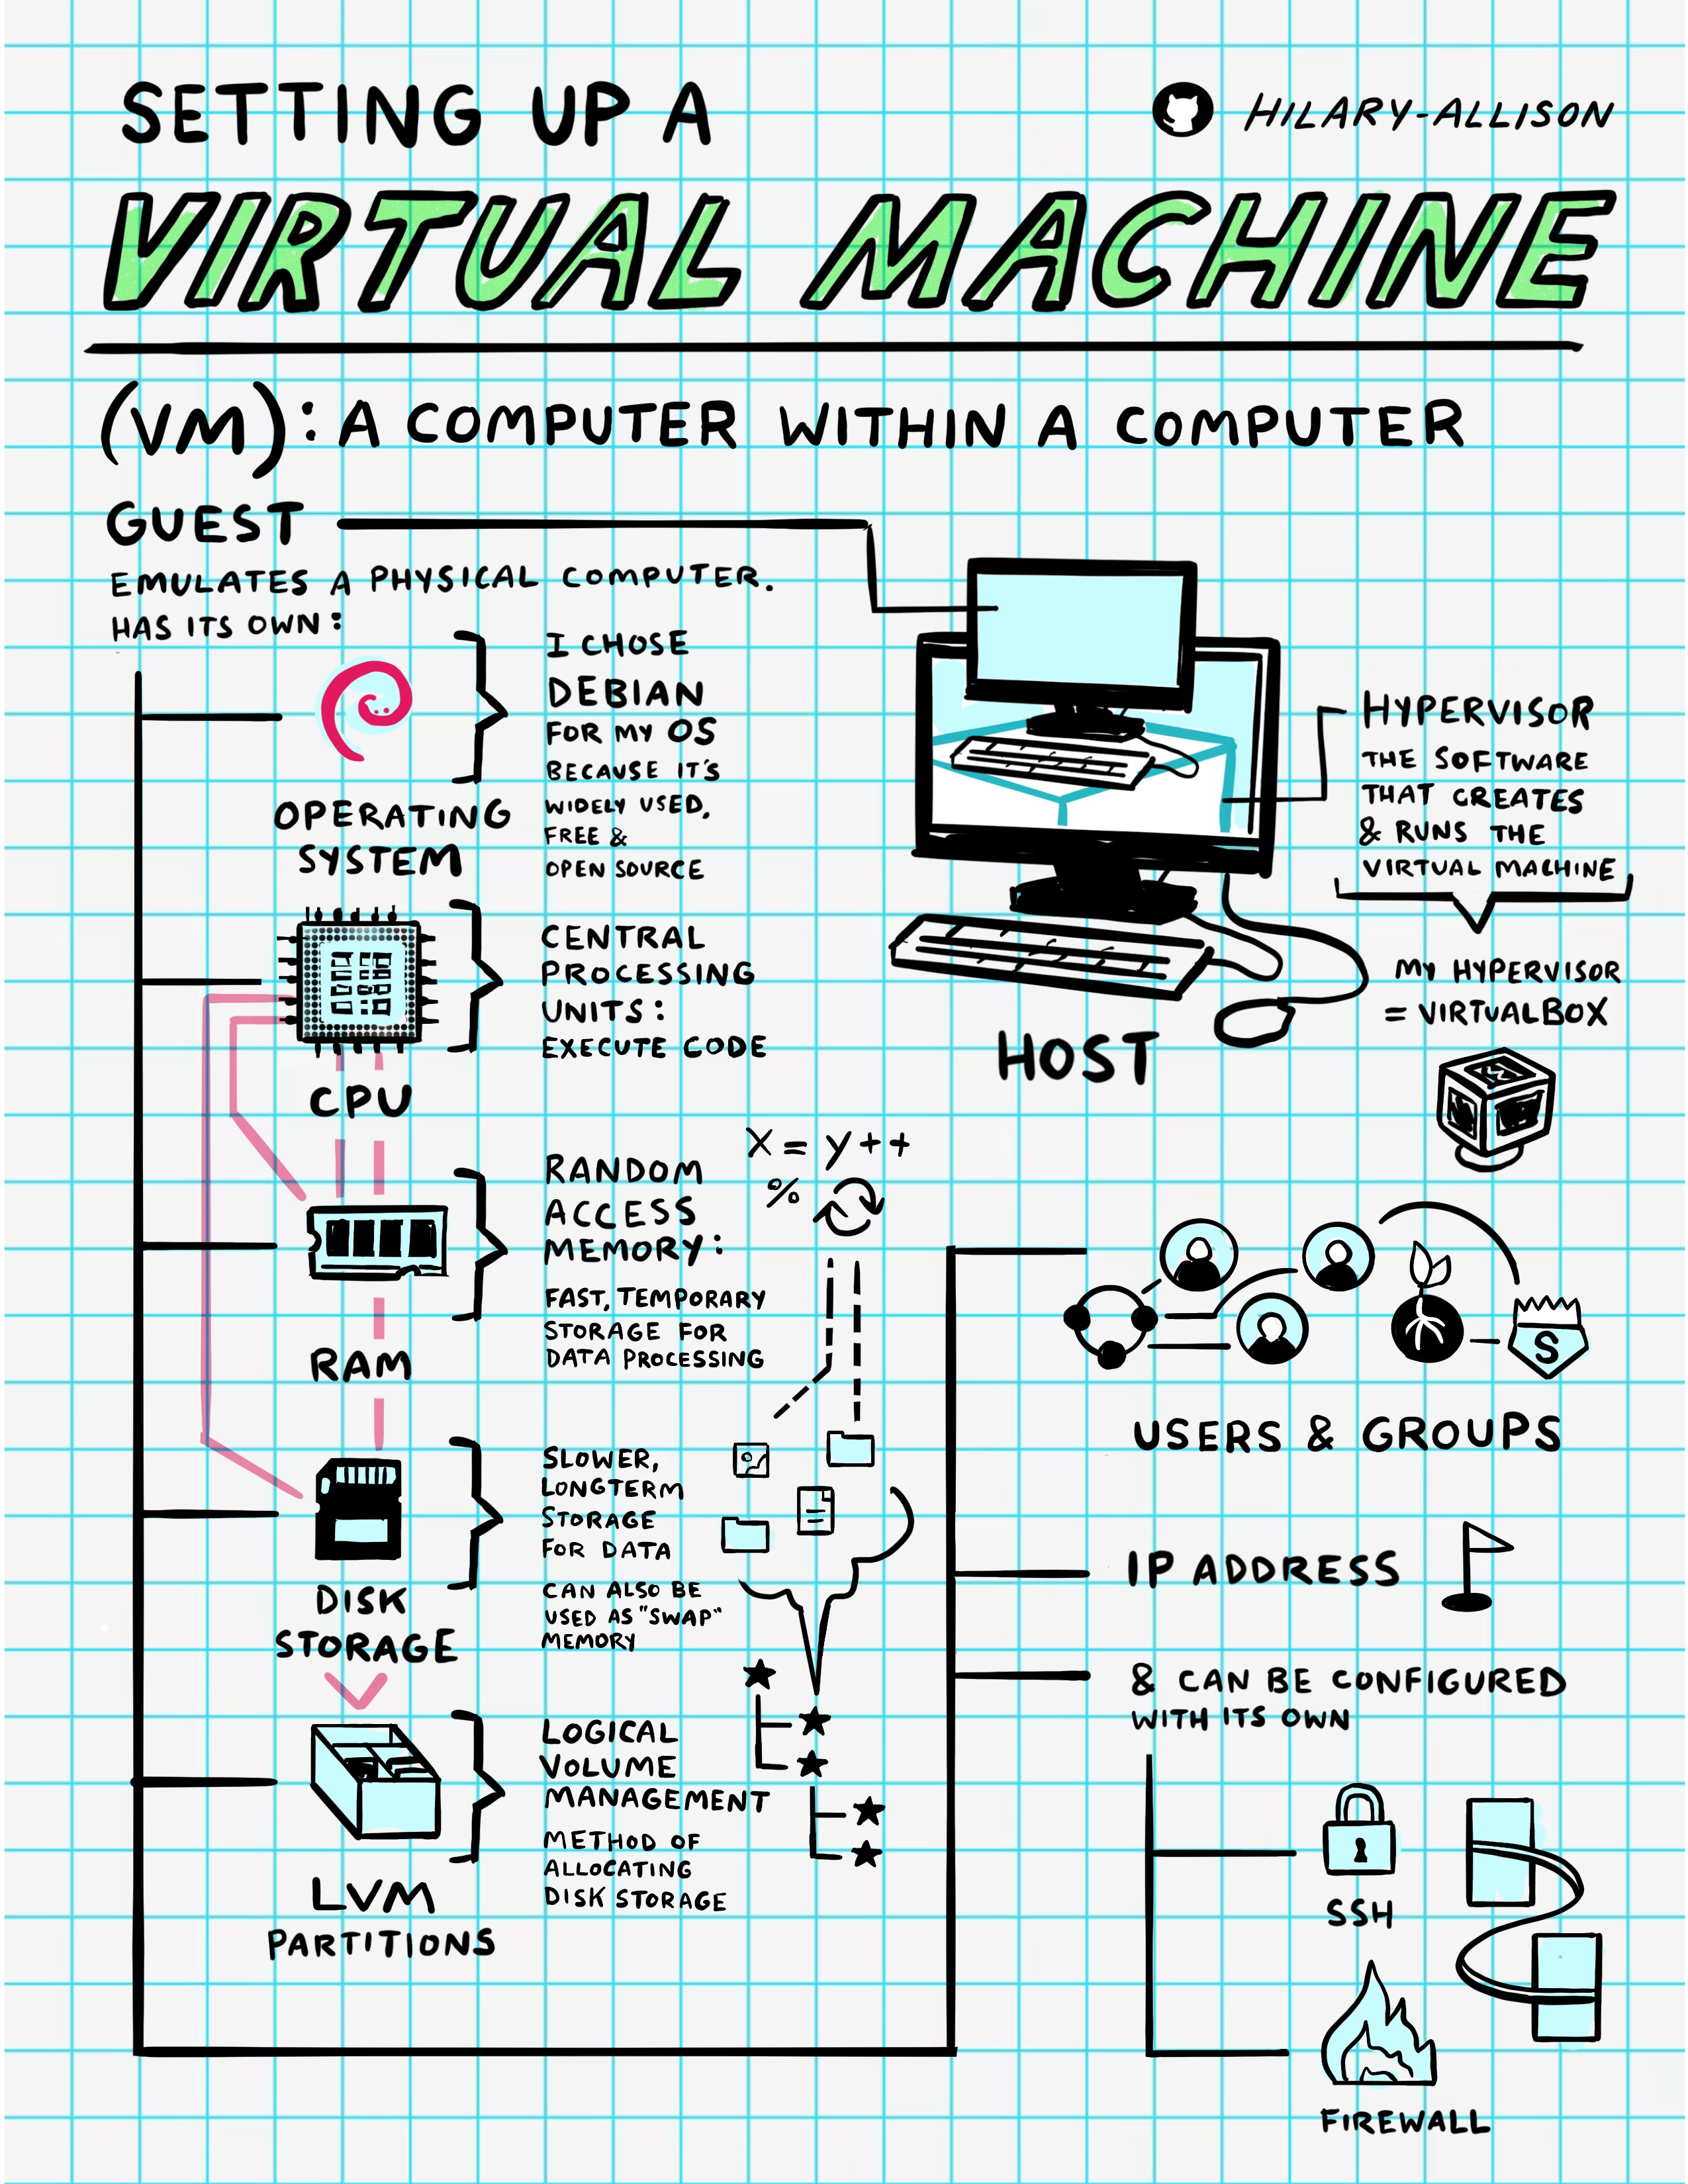 SETTING UP A
HILARY-ALLISON
VIRTUAL MACHINE
(VM): A COMPUTER WITHIN A COMPUTER
GUEST
EMULATES A PHYSICAL COMPUTER.
HAS ITS OWN:
OPERATING
SYSTEM
I CHOSE
DEBIAN
FOR MY OS
BECAUSE IT'S
WIDELY USED,
FREE &
OPEN SOURCE
CPU
CENTRAL
PROCESSING
UNITS:
EXECUTE CODE
RAM
RANDOM
ACCESS
MEMORY:
FAST, TEMPORARY
STORAGE FOR
DATA PROCESSING
X = y++
%
DISK
STORAGE
SLOWER,
LONGTERM
STORAGE
FOR DATA
CAN ALSO BE
USED AS "SWAP"
MEMORY
LVM
PARTITIONS
LOGICAL
VOLUME
MANAGEMENT
METHOD OF
ALLOCATING
DISK STORAGE
HOST
HYPERVISOR
THE SOFTWARE
THAT CREATES
& RUNS THE
VIRTUAL MACHINE
MY HYPERVISOR
= VIRTUALBOX
S
USERS & GROUPS
IP ADDRESS
& CAN BE CONFIGURED
WITH ITS OWN
SSH
FIREWALL